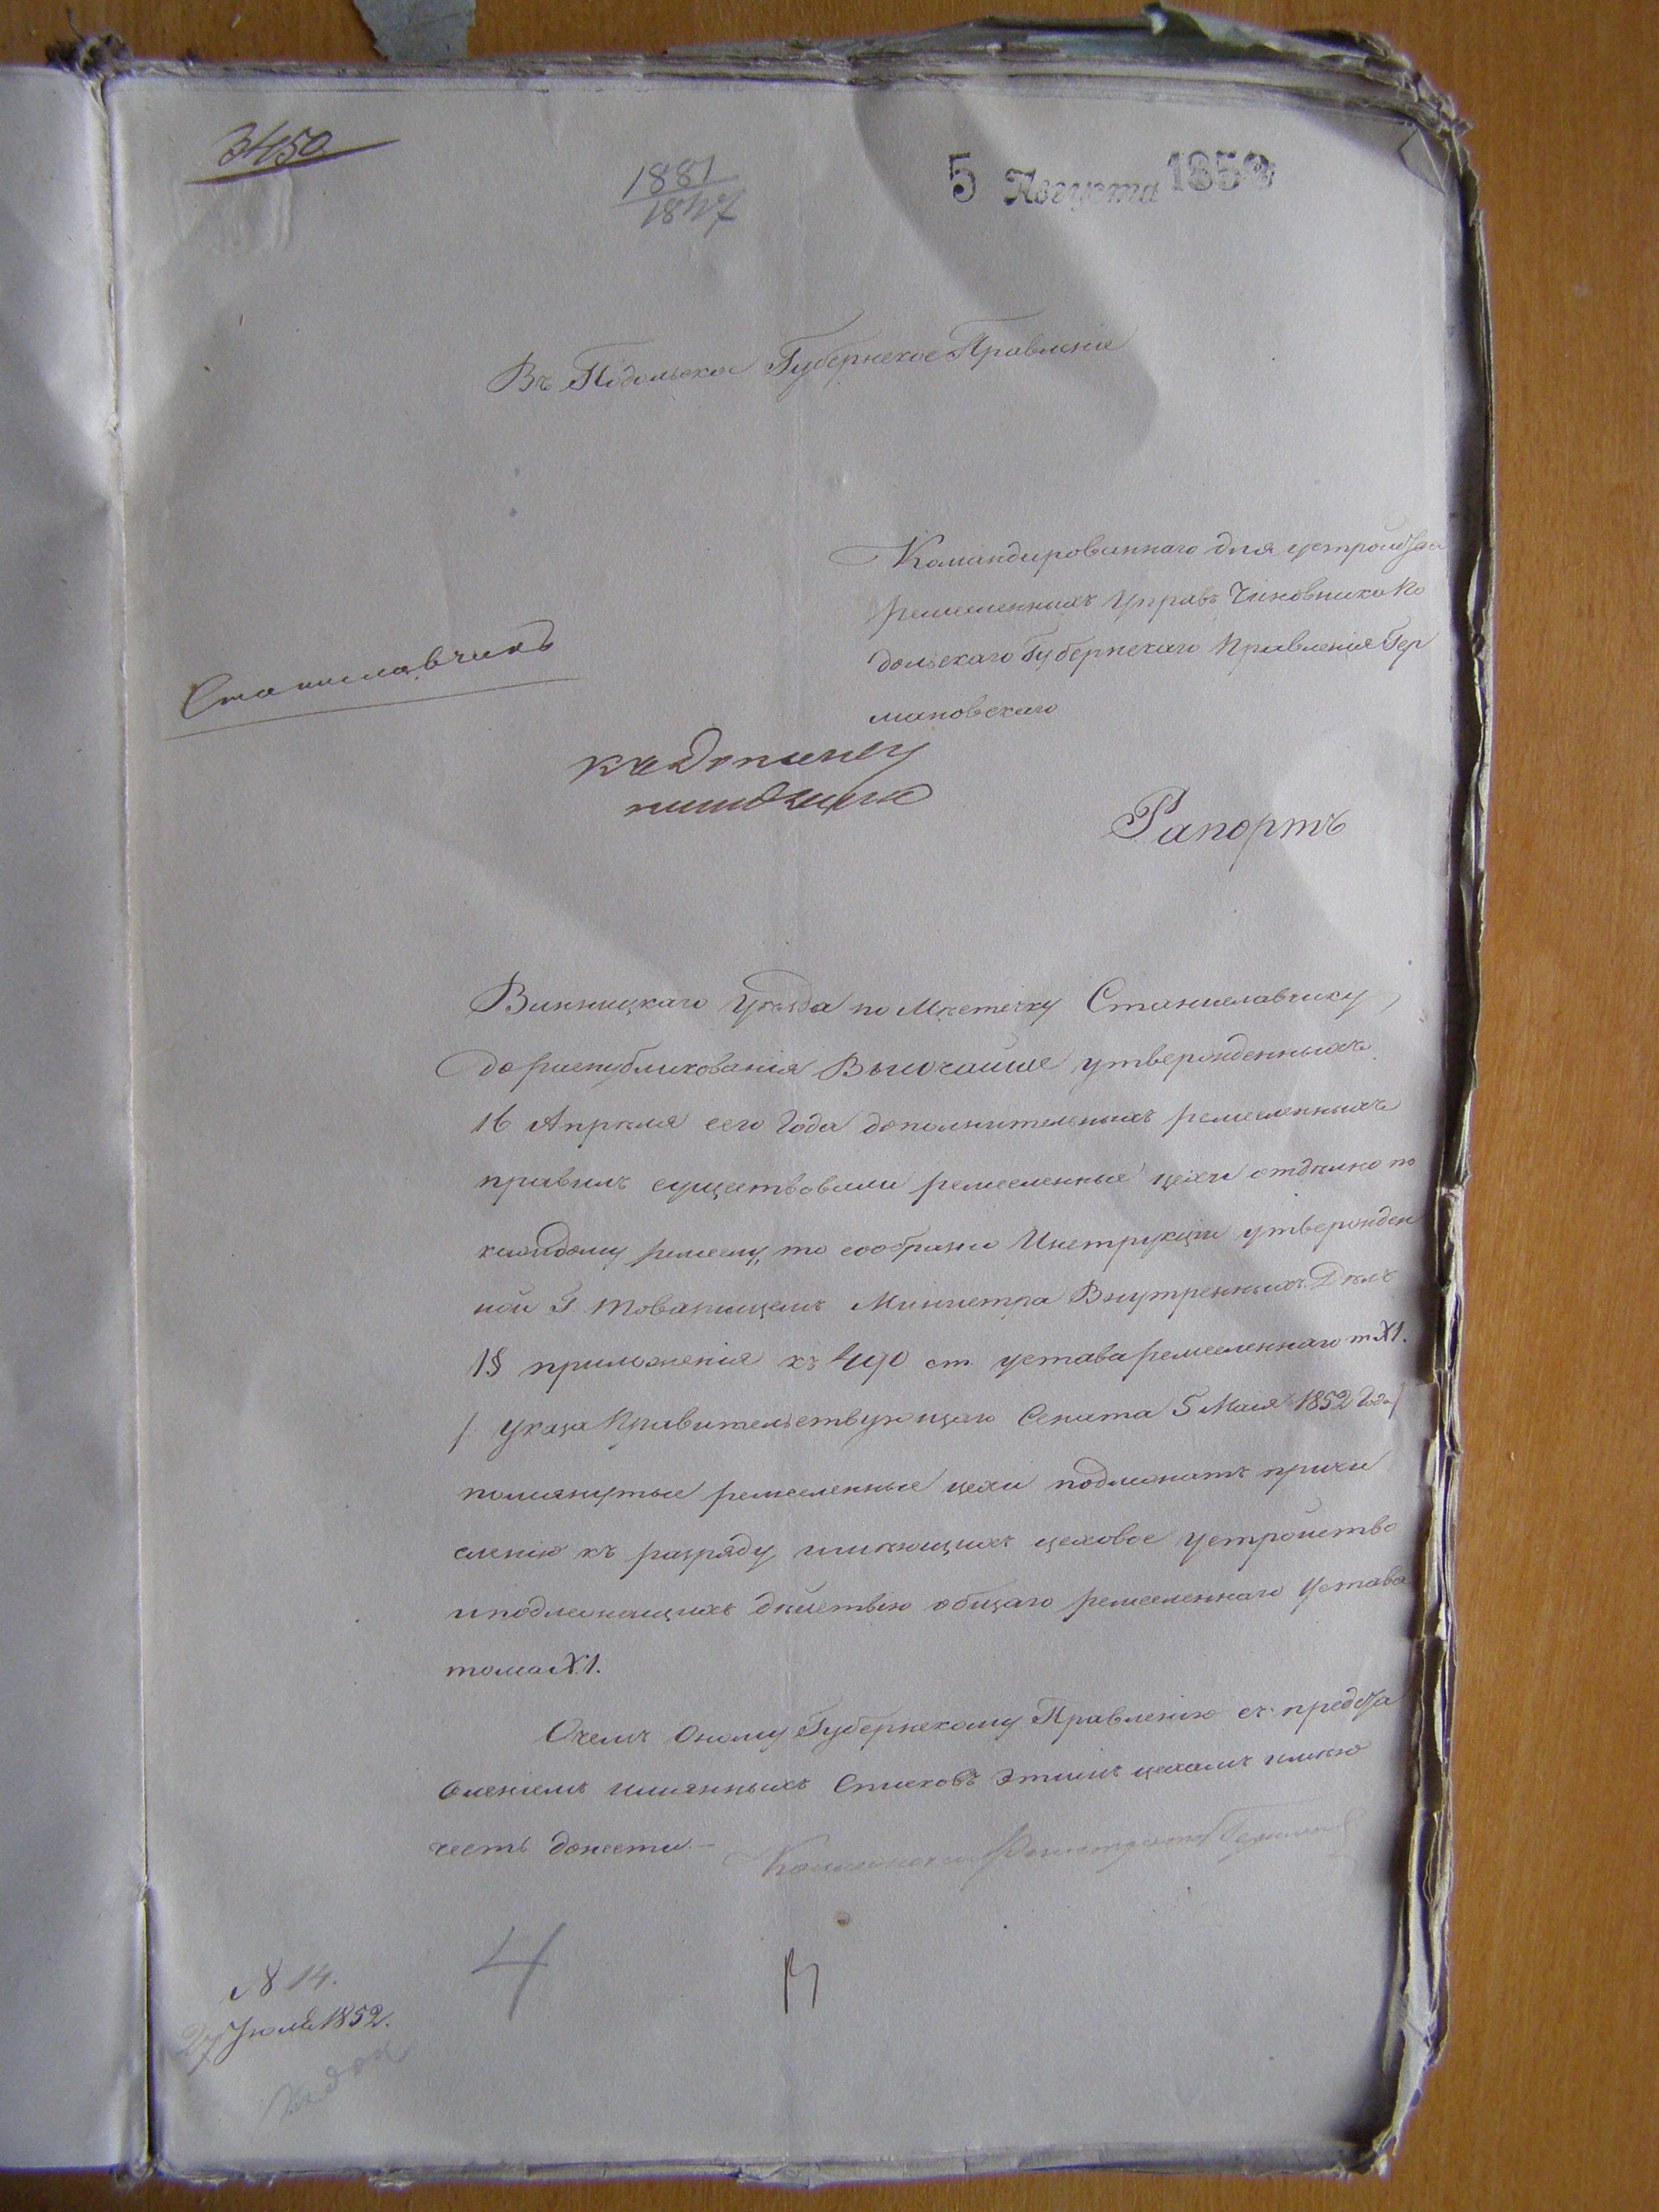 3450
1881
1847
5 Августа 1852
Въ Подольское Губернское Правленіе
Командированнаго для устройства
ремесленныхъ Управъ Чиновника По
дольскаго Губернскаго Правленія Гер
мановскаго
Станиславчикъ
Рапортъ
Винницкаго Уѣзда по Мѣстечку Станиславчику,
до распубликованія Высочайше утвержденныхъ
16 Апрѣля сего Года дополнительныхъ ремесленныхъ
правилъ существовали ремесленные цехи отдѣльно по
каждому ремеслу, то сообразно Инструкціи утвержден
ной Г. Товарищемъ Министра Внутреннихъ Дѣлъ
1§ приложенія къ 490 ст. устава ремесленнаго т XI.
/ Указа Правительствующаго Сената 5 Мая 1852 Года /
помянутые ремесленные цехи подлежатъ причи
сленію къ разряду имѣющихъ цеховое устройство
и подлежащихъ дѣйствію общаго ремесленнаго Устава
тома XI.
О чемъ Оному Губернскому Правленію съ предста
вленіемъ имянныхъ Списковъ этимъ цехамъ имѣю
честь донести.—
Регистраторъ
4
N 14.
27 Іюля 1852.